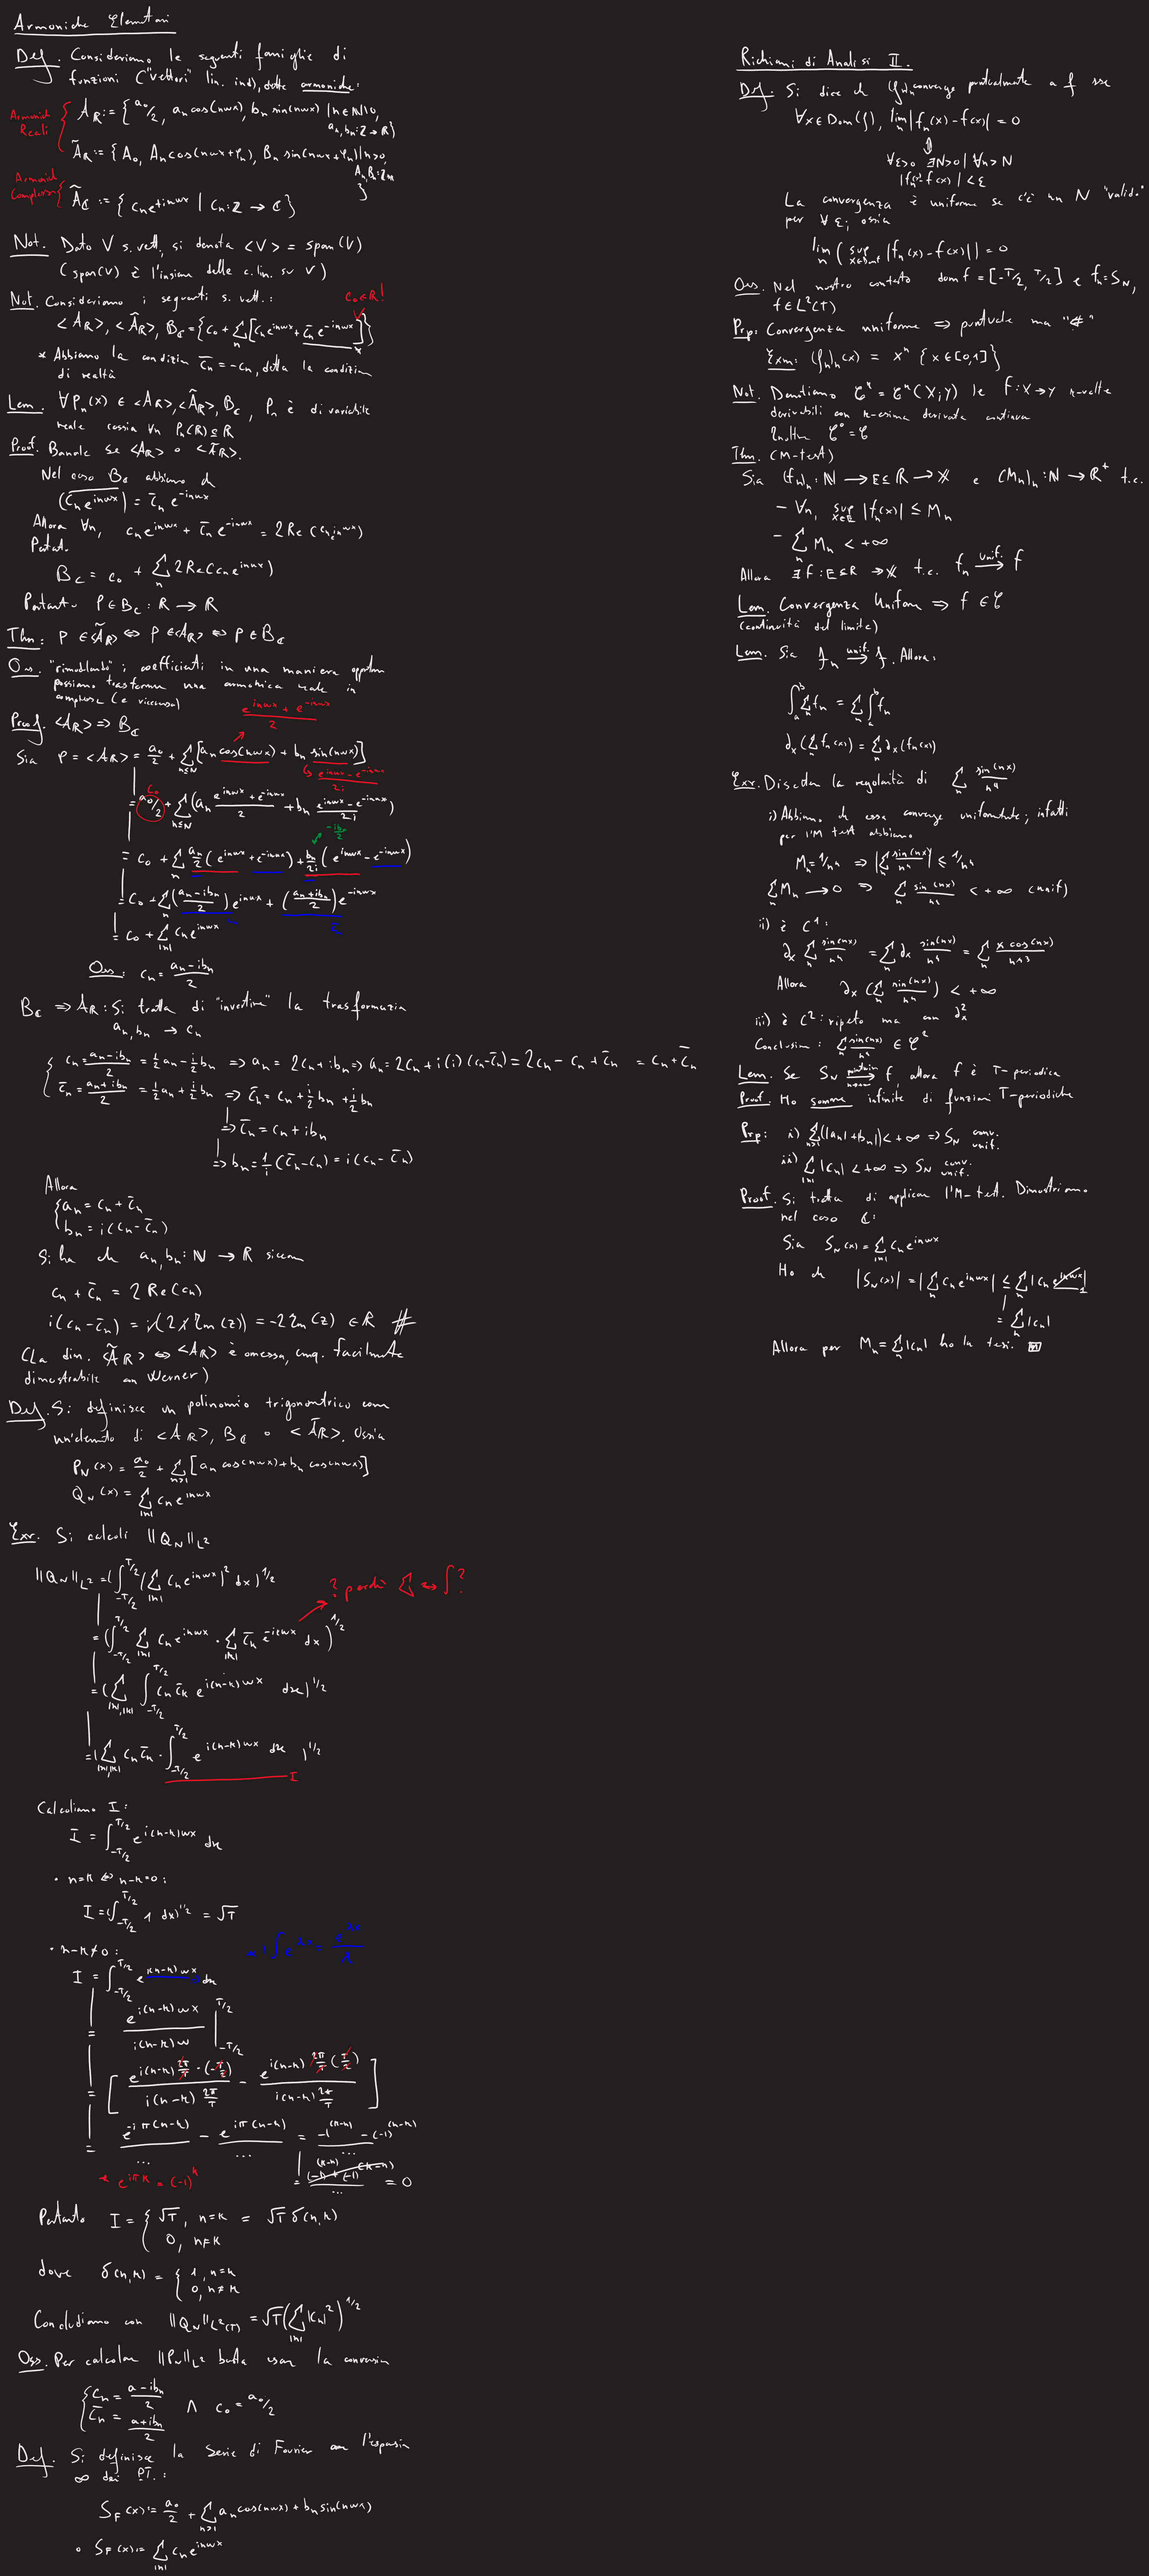 Armoniche Elementari
Def. Consideriamo le seguenti famiglie di
funzioni ("vettori" lin. ind), dette armoniche:
Armoniche Reali
A_ℝ := { a₀/2, aₙcos(nωx), bₙ sin(nωx) | n∈ℕ\0,
aₙ, bₙ: ℤ → ℝ}
Ã_ℝ := { A₀, Aₙcos(nωx+φₙ), Bₙ sin(nωx+φₙ) | n>0,
Armonich Complesse
Ã_ℂ := { cₙe^{±inωx} | cₙ: ℤ → ℂ }
Not. Dato V s. vett, si denota <V> = span(V)
(span(V) è l'insieme delle c. lin. su V)
Not. Consideriamo i seguenti s. vett.:
c₀∈ℝ!
<A_ℝ>, <Ã_ℝ>, B_ℂ = {c₀ + Σₙ[cₙe^{inωx} + c̄ₙ e^{-inωx}]}
* Abbiamo la condizion c̄ₙ = -cₙ, detta la condizion
di realtà
Lem. ∀Pₙ(x) ∈ <A_ℝ>, <Ã_ℝ>, B_ℂ, Pₙ è di variabile
reale ossia ∀n Pₙ(ℝ) ⊆ ℝ
Proof. Banale se <A_ℝ> o <Ã_ℝ>.
Nel caso B_ℂ abbiamo ch
(cₙe^{inωx})‾ = c̄ₙ e^{-inωx}
Allora ∀n, cₙe^{inωx} + c̄ₙ e^{-inωx} = 2Re(cₙe^{inωx})
Pertant.
B_ℂ = c₀ + Σₙ 2Re(cₙe^{inωx})
Pertanto P∈B_ℂ : ℝ → ℝ
Thm: P ∈<Ã_ℝ> ⇔ P∈<A_ℝ> ⇔ P∈B_ℂ
Oss. "rimodulando" i coefficienti in una maniera opportun
possiamo trasformare una armonica reale in
complessa (e viceversa)
Proof. <A_ℝ> ⇒ B_ℂ
(e^{inωx} + e^{-inωx})/2
Sia P = <A_ℝ> = a₀/2 + Σ_{n≤N}[aₙcos(nωx) + bₙ sin(nωx)]
(e^{inωx} - e^{-inωx})/2i
c₀
= a₀/2 + Σ_{n≤N}(aₙ (e^{inωx}+e^{-inωx})/2 + bₙ (e^{inωx}-e^{-inωx})/2i)
-ibₙ/2
= c₀ + Σₙ aₙ/2 (e^{inωx}+e^{-inωx}) + bₙ/2i (e^{inωx}-e^{-inωx})
= c₀ + Σₙ ((aₙ-ibₙ)/2)e^{inωx} + ((aₙ+ibₙ)/2)e^{-inωx}
= c₀ + Σ_{|n|} cₙe^{inωx}
Oss: cₙ = (aₙ-ibₙ)/2
B_ℂ ⇒ A_ℝ: Si tratta di "invertire" la trasformazion
aₙ, bₙ → cₙ
cₙ = (aₙ-ibₙ)/2 = ½aₙ - ½ibₙ ⇒ aₙ = 2cₙ+ibₙ ⇒ aₙ = 2cₙ + i(i)(cₙ-c̄ₙ) = 2cₙ-cₙ+c̄ₙ = cₙ+c̄ₙ
c̄ₙ = (aₙ+ibₙ)/2 = ½aₙ + ½ibₙ ⇒ c̄ₙ = cₙ + ½ibₙ + ½ibₙ
⇒ c̄ₙ = cₙ+ibₙ
⇒ bₙ = 1/i (c̄ₙ-cₙ) = i(cₙ-c̄ₙ)
Allora
{aₙ = cₙ+c̄ₙ
bₙ = i(cₙ-c̄ₙ)
Si ha ch aₙ, bₙ: ℕ → ℝ siccom
cₙ + c̄ₙ = 2Re(cₙ)
i(cₙ-c̄ₙ) = i(2i Im(z)) = -2Im(z) ∈ℝ #
(La dim. <Ã_ℝ> ⇔ <A_ℝ> è omessa, cmq. facilmente
dimostrabile con Werner)
Def. Si definisce un polinomio trigonometrico com
un'elemento di <A_ℝ>, B_ℂ o <Ã_ℝ>. Ossia
P_N(x) = a₀/2 + Σ_{n≥1}[aₙ cos(nωx)+bₙ cos(nωx)]
Q_N(x) = Σ_{|n|} cₙe^{inωx}
Exr. Si calcoli ||Q_N||_{L²}
||Q_N||_{L²} = (∫_{-T/2}^{T/2} |Σ_{|n|} cₙe^{inωx}|² dx)^{1/2}
? perché Σ ↔ ∫ ?
= (∫_{-T/2}^{T/2} Σ_{|n|} cₙe^{inωx} · Σ_{|k|} c̄ₖ e^{-ikωx} dx)^{1/2}
= (Σ_{|n|,|k|} ∫_{-T/2}^{T/2} cₙc̄ₖ e^{i(n-k)ωx} dx)^{1/2}
= (Σ_{|n|,|k|} cₙc̄ₖ · ∫_{-T/2}^{T/2} e^{i(n-k)ωx} dx)^{1/2}
I
Calcoliamo I:
I = ∫_{-T/2}^{T/2} e^{i(n-k)ωx} dx
· n=k ⇔ n-k=0:
I = (∫_{-T/2}^{T/2} 1 dx)^{1/2} = √T
· n-k≠0:
I = ∫_{-T/2}^{T/2} e^{i(n-k)ωx} dx
= e^{i(n-k)ωx}/(i(n-k)ω) |_{-T/2}^{T/2}
= [e^{i(n-k)2π/T·(-T/2)}/(i(n-k)2π/T) - e^{i(n-k)2π/T(T/2)}/(i(n-k)2π/T)]
= e^{-iπ(n-k)}/... - e^{iπ(n-k)}/... = (-1^{(k-n)} - (-1)^{(n-k)})/...
* e^{iπk} = (-1)^k
= 0
Pertanto I = { √T, n=k = √T δ(n,k)
0, n≠k
dove δ(n,k) = { 1, n=k
0, n≠k
Concludiamo con ||Q_N||_{L²(T)} = √T(Σ_{|n|}|cₙ|²)^{1/2}
Oss. Per calcolare ||P_N||_{L²} basta usare la conversion
{cₙ = (a-ibₙ)/2
c̄ₙ = (a+ibₙ)/2 ∧ c₀ = a₀/2
Def. Si definisce la Serie di Fourier com l'espansion
∞ dei PT.:
S_F(x) := a₀/2 + Σ_{n≥1} aₙcos(nωx)+bₙsin(nωx)
o S_F(x) := Σ_{|n|} cₙe^{inωx}
Richiami di Analisi II.
Def. Si dice ch (fₙ)ₙ converge puntualmente a f sse
∀x∈Dom(f), limₙ|fₙ(x)-f(x)| = 0
⇕
∀ε>0 ∃N>0 | ∀n>N
|fₙ-f(x)| < ε
La convergenza è uniforme se c'è un N "valido"
per ∀ε; ossia
limₙ (sup_{x∈Domf} |fₙ(x)-f(x)|) = 0
Oss. Nel nostro contesto domf = [-T/2, T/2] e fₙ=S_N,
f∈L²(T)
Prp. Convergenza uniforme ⇒ puntuale ma "⇍"
Exm: (fₙ)ₙ(x) = xⁿ {x∈[0,1]}
Not. Denotiamo 𝒞ⁿ = 𝒞ⁿ(X;Y) le f: X→Y n-volte
derivabili con n-esima derivata continua
Inoltre 𝒞⁰ = 𝒞
Thm. (M-test)
Sia (fₙ)ₙ: ℕ → E⊆ℝ → X e (Mₙ)ₙ: ℕ → ℝ⁺ t.c.
- ∀n, sup_{x∈E} |fₙ(x)| ≤ Mₙ
- Σₙ Mₙ < +∞
Allora ∃f: E⊆ℝ → X t.c. fₙ →^{unif.} f
Lem. Convergenza Uniforme ⇒ f ∈ 𝒞
(continuità del limite)
Lem. Sia fₙ →^{unif.} f. Allora:
∫ₐᵇ Σₙ fₙ = Σₙ ∫ₐᵇ fₙ
∂ₓ(Σₙ fₙ(x)) = Σₙ ∂ₓ(fₙ(x))
Exr. Discutere la regolarità di Σₙ sin(nx)/n⁴
i) Abbiamo ch essa converge uniformemente; infatti
per l'M test abbiamo
Mₙ = 1/n⁴ ⇒ |Σₙ sin(nx)/n⁴| ≤ 1/n⁴
Σₙ Mₙ → 0 ⇒ Σₙ sin(nx)/n⁴ < +∞ (unif)
ii) è C¹:
∂ₓ Σₙ sin(nx)/n⁴ = Σₙ ∂ₓ sin(nx)/n⁴ = Σₙ x cos(nx)/n⁴³
Allora ∂ₓ(Σₙ sin(nx)/n⁴) < +∞
iii) è C²: ripeto ma con ∂ₓ²
Conclusion: Σₙ sin(nx)/n⁴ ∈ 𝒞²
Lem. Se S_N → f, allora f è T-periodica
Proof. Ho somme infinite di funzioni T-periodiche
Prp: i) Σ_{n≥1}(|aₙ|+|bₙ|) < +∞ ⇒ S_N conv. unif.
ii) Σ_{|n|} |cₙ| < +∞ ⇒ S_N conv. unif.
Proof. Si tratta di applicare l'M-test. Dimostriamo
nel caso ℂ:
Sia S_N(x) = Σ_{|n|} cₙe^{inωx}
Ho ch |S_N(x)| = |Σₙ cₙe^{inωx}| ≤ Σₙ |cₙe^{inωx}|
1
= Σₙ |cₙ|
Allora per Mₙ = Σₙ|cₙ| ho la tesi.